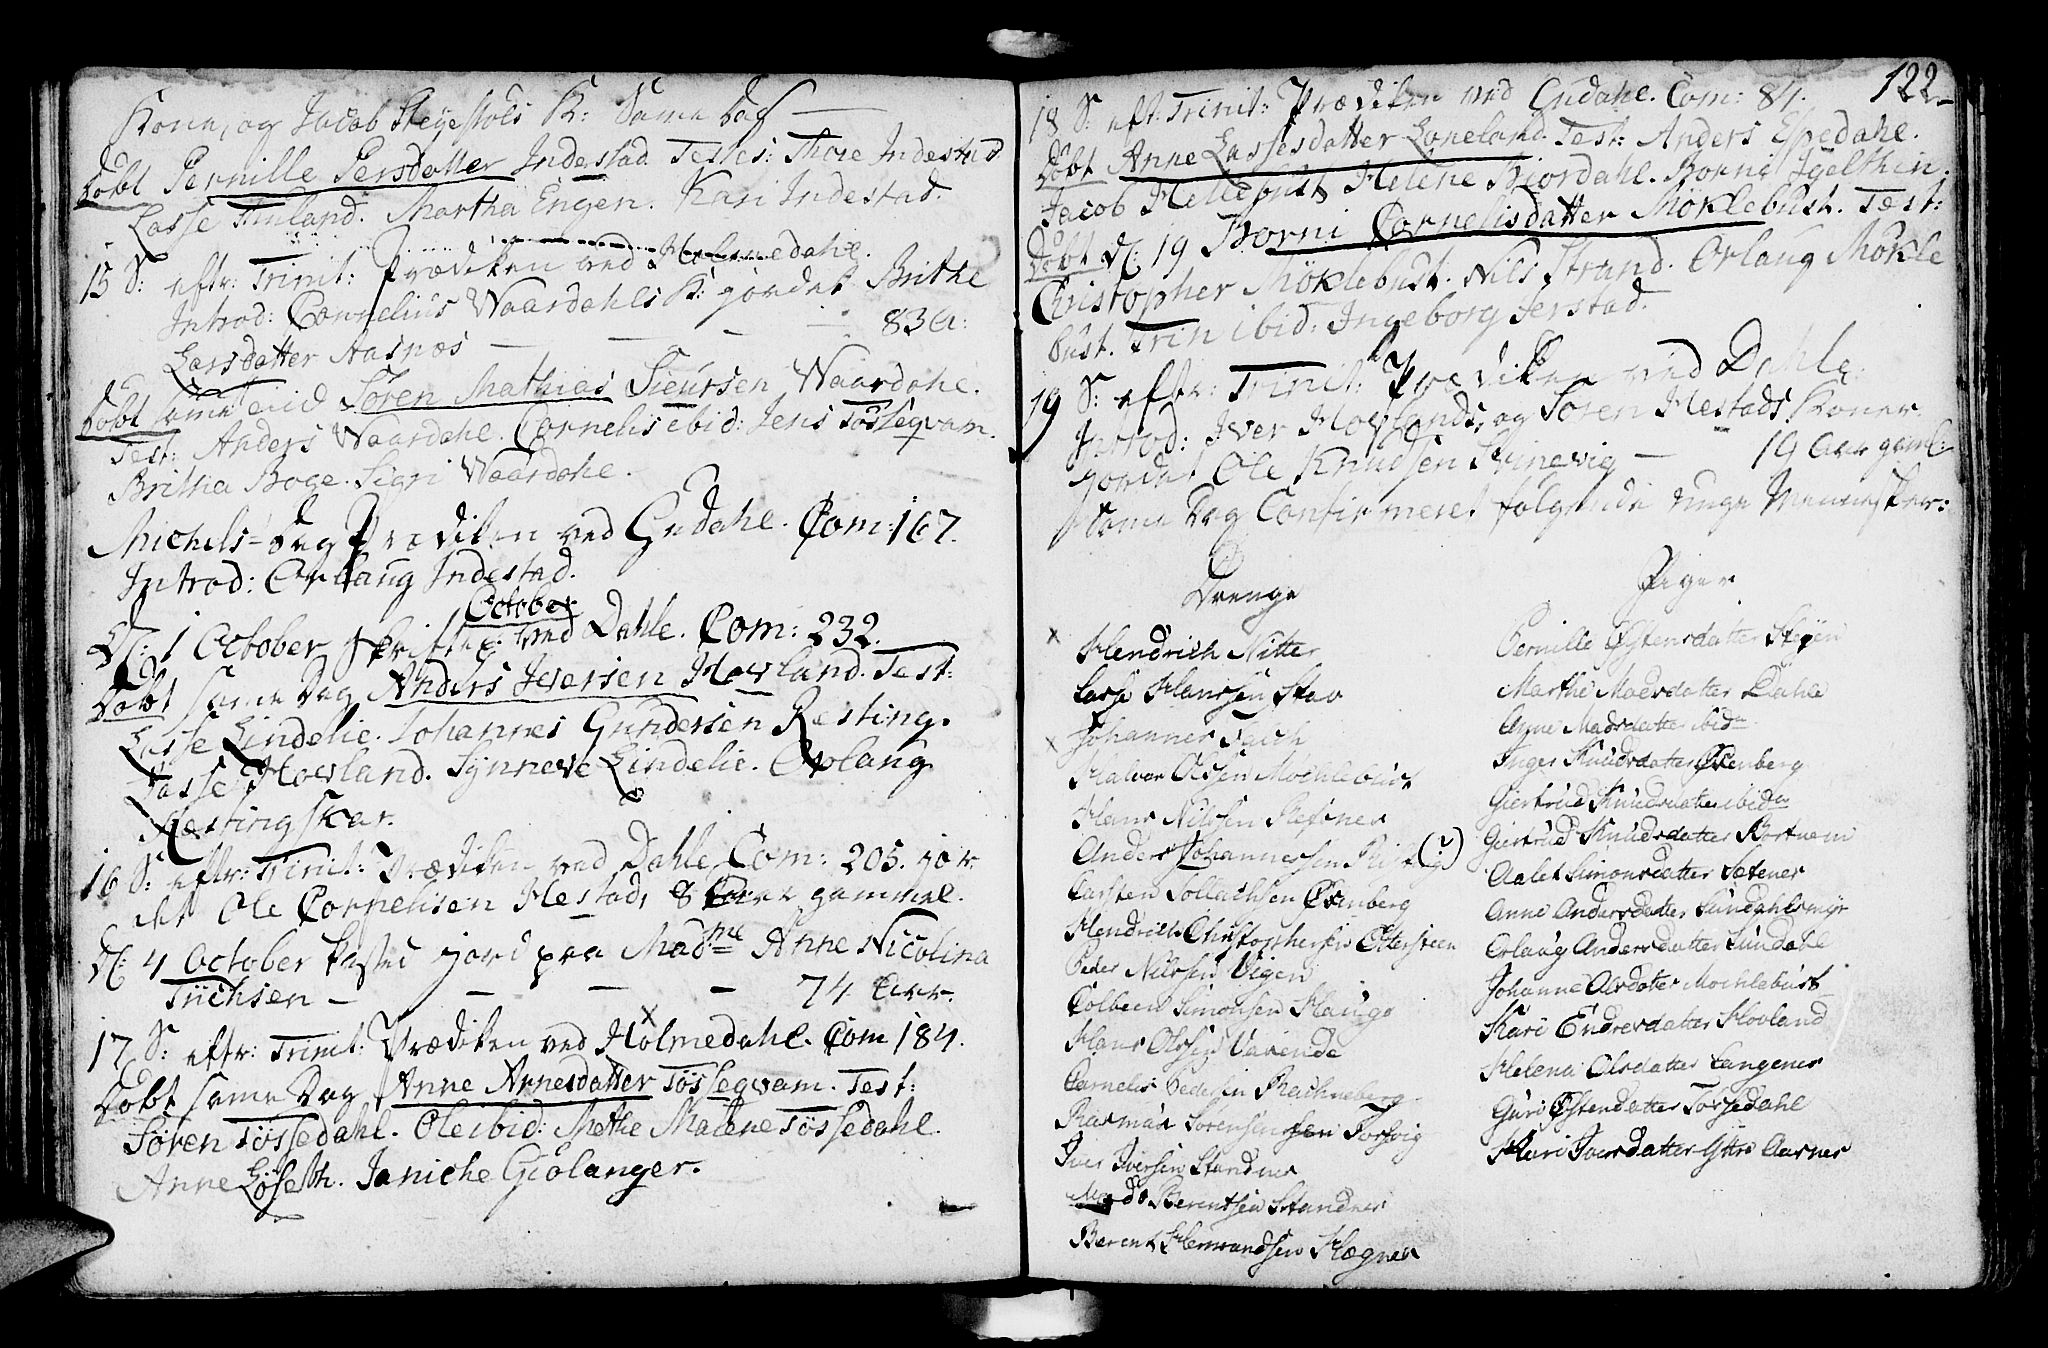 Kone, og Jacob Steyestøls K: Same Dag —
Døbt Pernille Persdatter Indestad. Testes: Thore Indestad
Lasse Tinland. Martha Engen. Kari Indestad.
15 S: eftr: Trinit: Prædiken ved Holmedahl.
Introd: Cornelius Waardahls K: jordet Brithe
Larsdatter Aasnæs — — — 83 a:
Døbt same Søren Mathias Sieursen Waardahl.
Test: Anders Waardahl. Cornelis ibid: Jens Tøsseqvam.
Britha Boge. Sigri Waardahl.
Michels-Dag Prædiken ved Gudahl. Com: 167.
Introd: Orlaug Indestad.
October
D: 1 October Skriftet: ved Dahle. Com: 232.
Døbt same Dag Anders Iversen Hovland. Test:
Lasse Lindelie. Johannes Gundersen Resting.
Lasse Hovland. Synneve Lindelie. Orlaug
Restingskar.
16 S: eftr: Trinit: Prædiken ved Dahle Com: 205. jor
det Ole Cornelisen Hestad, 8 gammel.
D: 4 October kasted jord paa Madme Anne Nicolina
Tüchsen — — — — 74 Aar.
17 S: eftr: Trinit: Prædiken ved Holmedahl. Com 184.
Døbt same Dag Anne Arnesdatter Tøsseqvam. Test:
Søren Tøssedahl. Ole ibid: Methe Malene Tøssedahl.
Anne Løseth. Janiche Giølanger.
122
18 S: eft: Trinit: Prædiken ved Gudahl. Com: 84.
Døbt Anne Lassesdatter Loneland. Test: Anders Espedahl.
Jacob Hellebust, Helene Biordahl. Borni
Døbt D: 19 Borni Cornelisdatter Møklebust. Test:
Christopher Møklebust. Nils Strand. Orlaug Møkle
bust. Trin ibid: Ingeborg Jerstad.
19 S: eftr: Trinit: Prædiken ved Dahle.
Introd: Iver Hovlands, og Søren Hestads Koner
jordet Ole Knudsen Svinevig — 19 Aar gaml:
Same Dag Confirmeret følgende unge Mennesker:
Drenge
Hendrich Nitter
Lasse Hanssen Stav
Johannes Falch
Halvor Olsen Mochlebust
Hans Nilssen
Anders Johannessen
Carsten Øxenberg
Hendrich Christophersen Ottersteen
Peder Nilssen Vigen
Colbeen Simonsen Hauge
Hans Olssen Værende
Cornelis Pedersen Rachneberg
Rasmus Sørensen Torsvig
Iver Iversen Standnes
Mads Berentsen Standnes
Berent Hermandsen Hegnes
Piger
Pernille Østensdatter Steyen
Marthe Madsdatter Dahle
Anne Madsdatter ibidm
Inger Knudsdatter Øxenberg
Giertrud Knudsdatter ibidm
Giertrud Knudsdatter Kortnem
Aalet Simonsdatter Sætenes
Anne Andersdatter Sundahlsmyr
Orlaug Andersdatter Sundahl
Johanne Olsdatter Mochlebust
Kari Endresdatter Hovland
Helena Olsdatter Langenes
Guri Østensdatter Torsedahl
Kari Iversdatter Yttre Aarnes